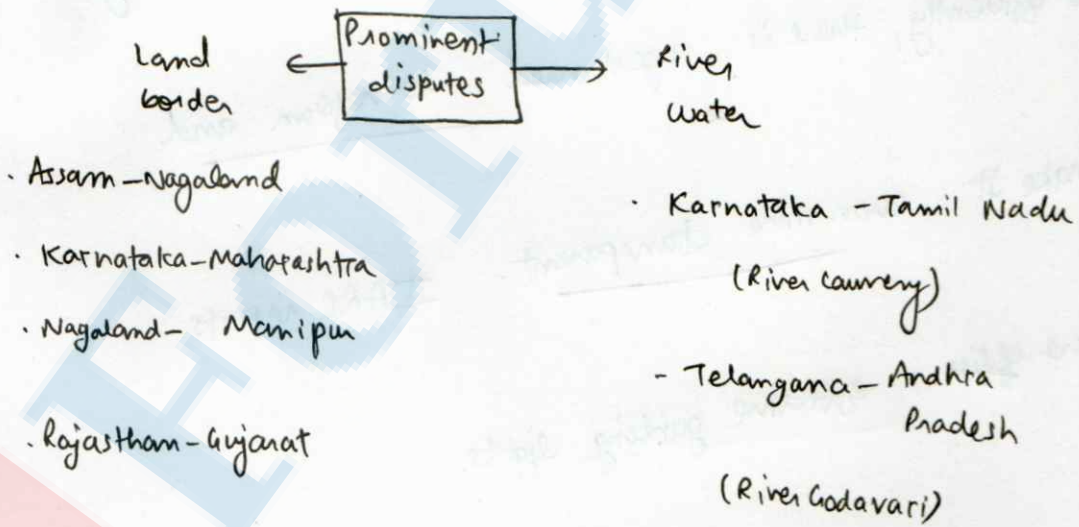 Prominent
disputes
Land
border
· Assam - Nagaland
· Karnataka - Maharashtra
· Nagaland - Manipur
· Rajasthan - Gujarat
River
water
· Karnataka - Tamil Nadu
(River Cauvery)
- Telangana - Andhra
Pradesh
(River Godavari)